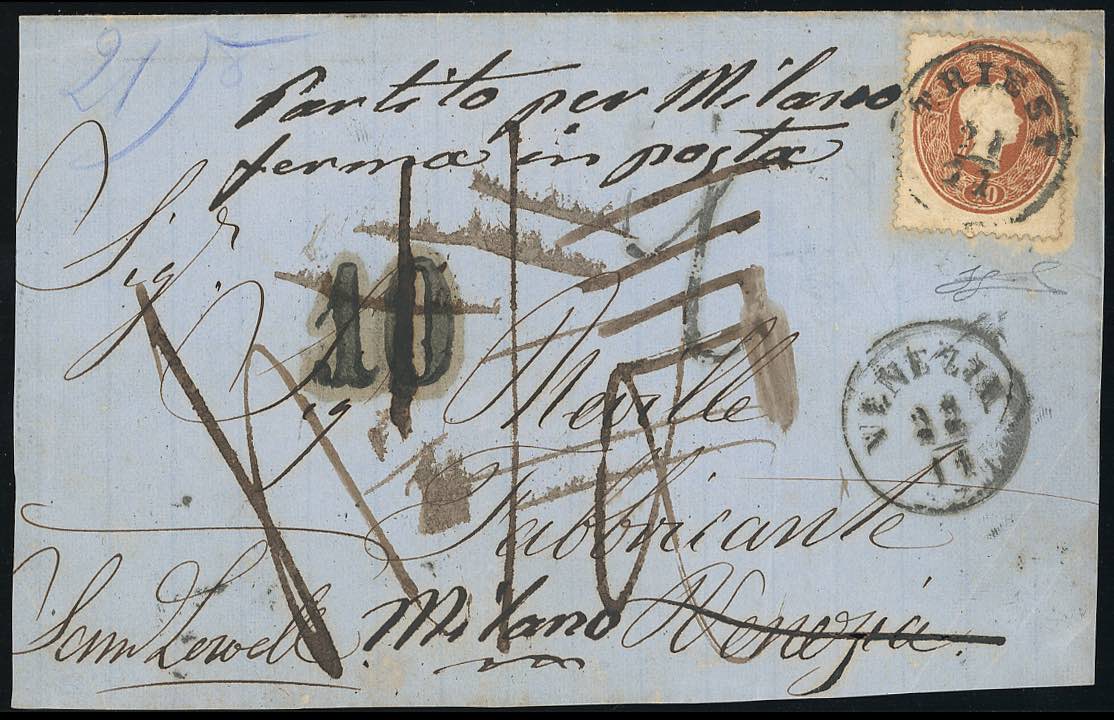 21/5
Partito per Milano
ferma in posta
TRIEST
21
11
10
Sigr
Sig Neville
VENEZIA
22
11
Fabbricante
Milano Venezia
Sam